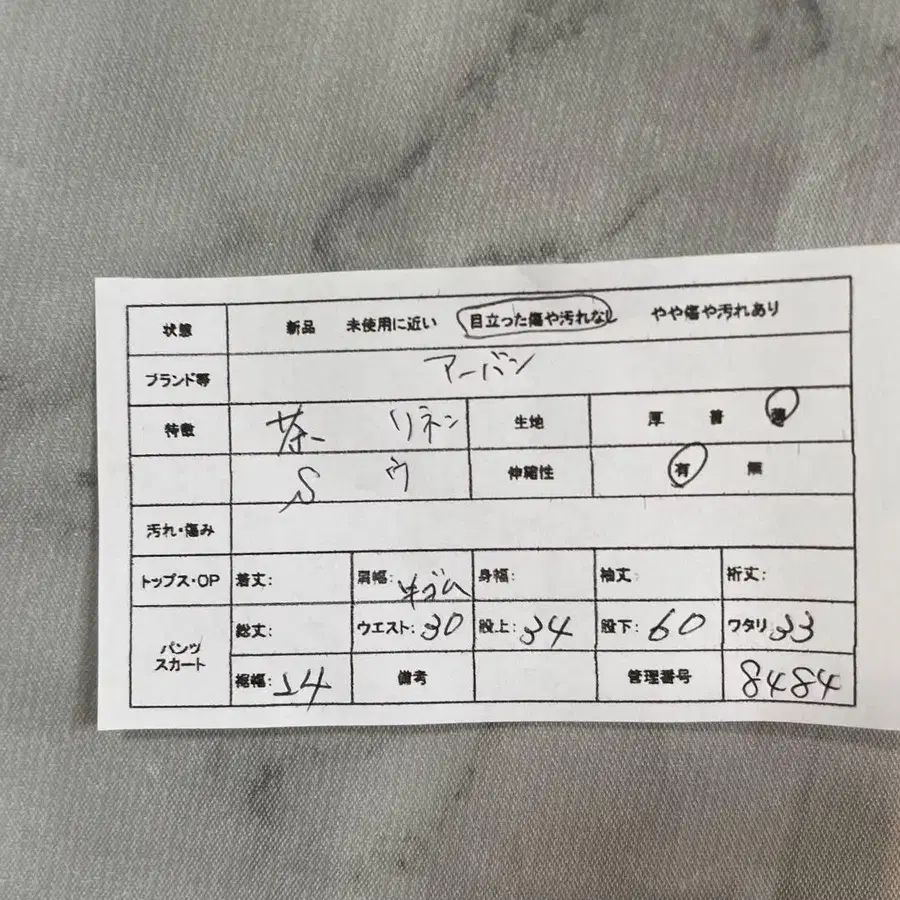 状態 新品 未使用に近い 目立った傷や汚れなし やや傷や汚れあり
ブランド等 アーバン
特徴 茶 リネン 生地 厚 普 薄
S ウ 伸縮性 有 無
汚れ・傷み
トップス・OP 着丈: 肩幅: ゴム 身幅: 袖丈 裄丈:
パンツ スカート 総丈: ウエスト: 30 股上: 34 股下: 60 ワタリ: 33
裾幅: 24 備考 管理番号 8484